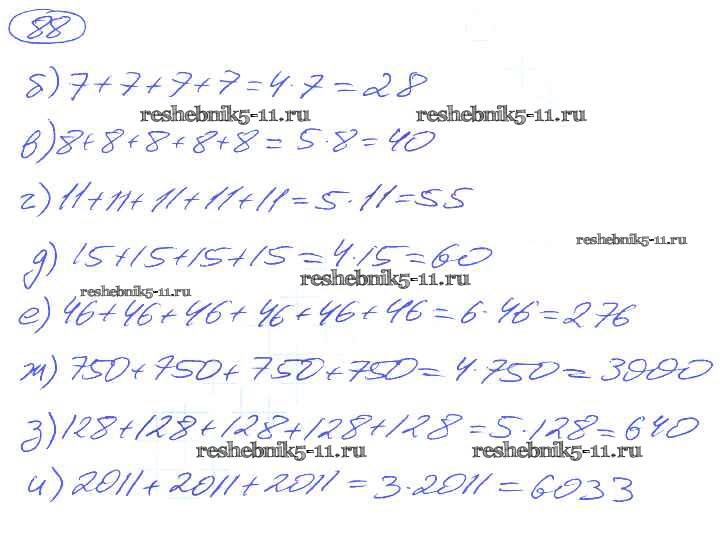 88
б) 7+7+7+7=4·7=28
reshebnik5-11.ru reshebnik5-11.ru
в) 8+8+8+8+8=5·8=40
г) 11+11+11+11+11=5·11=55
reshebnik5-11.ru
д) 15+15+15+15=4·15=60
reshebnik5-11.ru
reshebnik5-11.ru
е) 46+46+46+46+46+46=6·46=276
ж) 750+750+750+750=4·750=3000
з) 128+128+128+128+128=5·128=640
reshebnik5-11.ru reshebnik5-11.ru
и) 2011+2011+2011=3·2011=6033